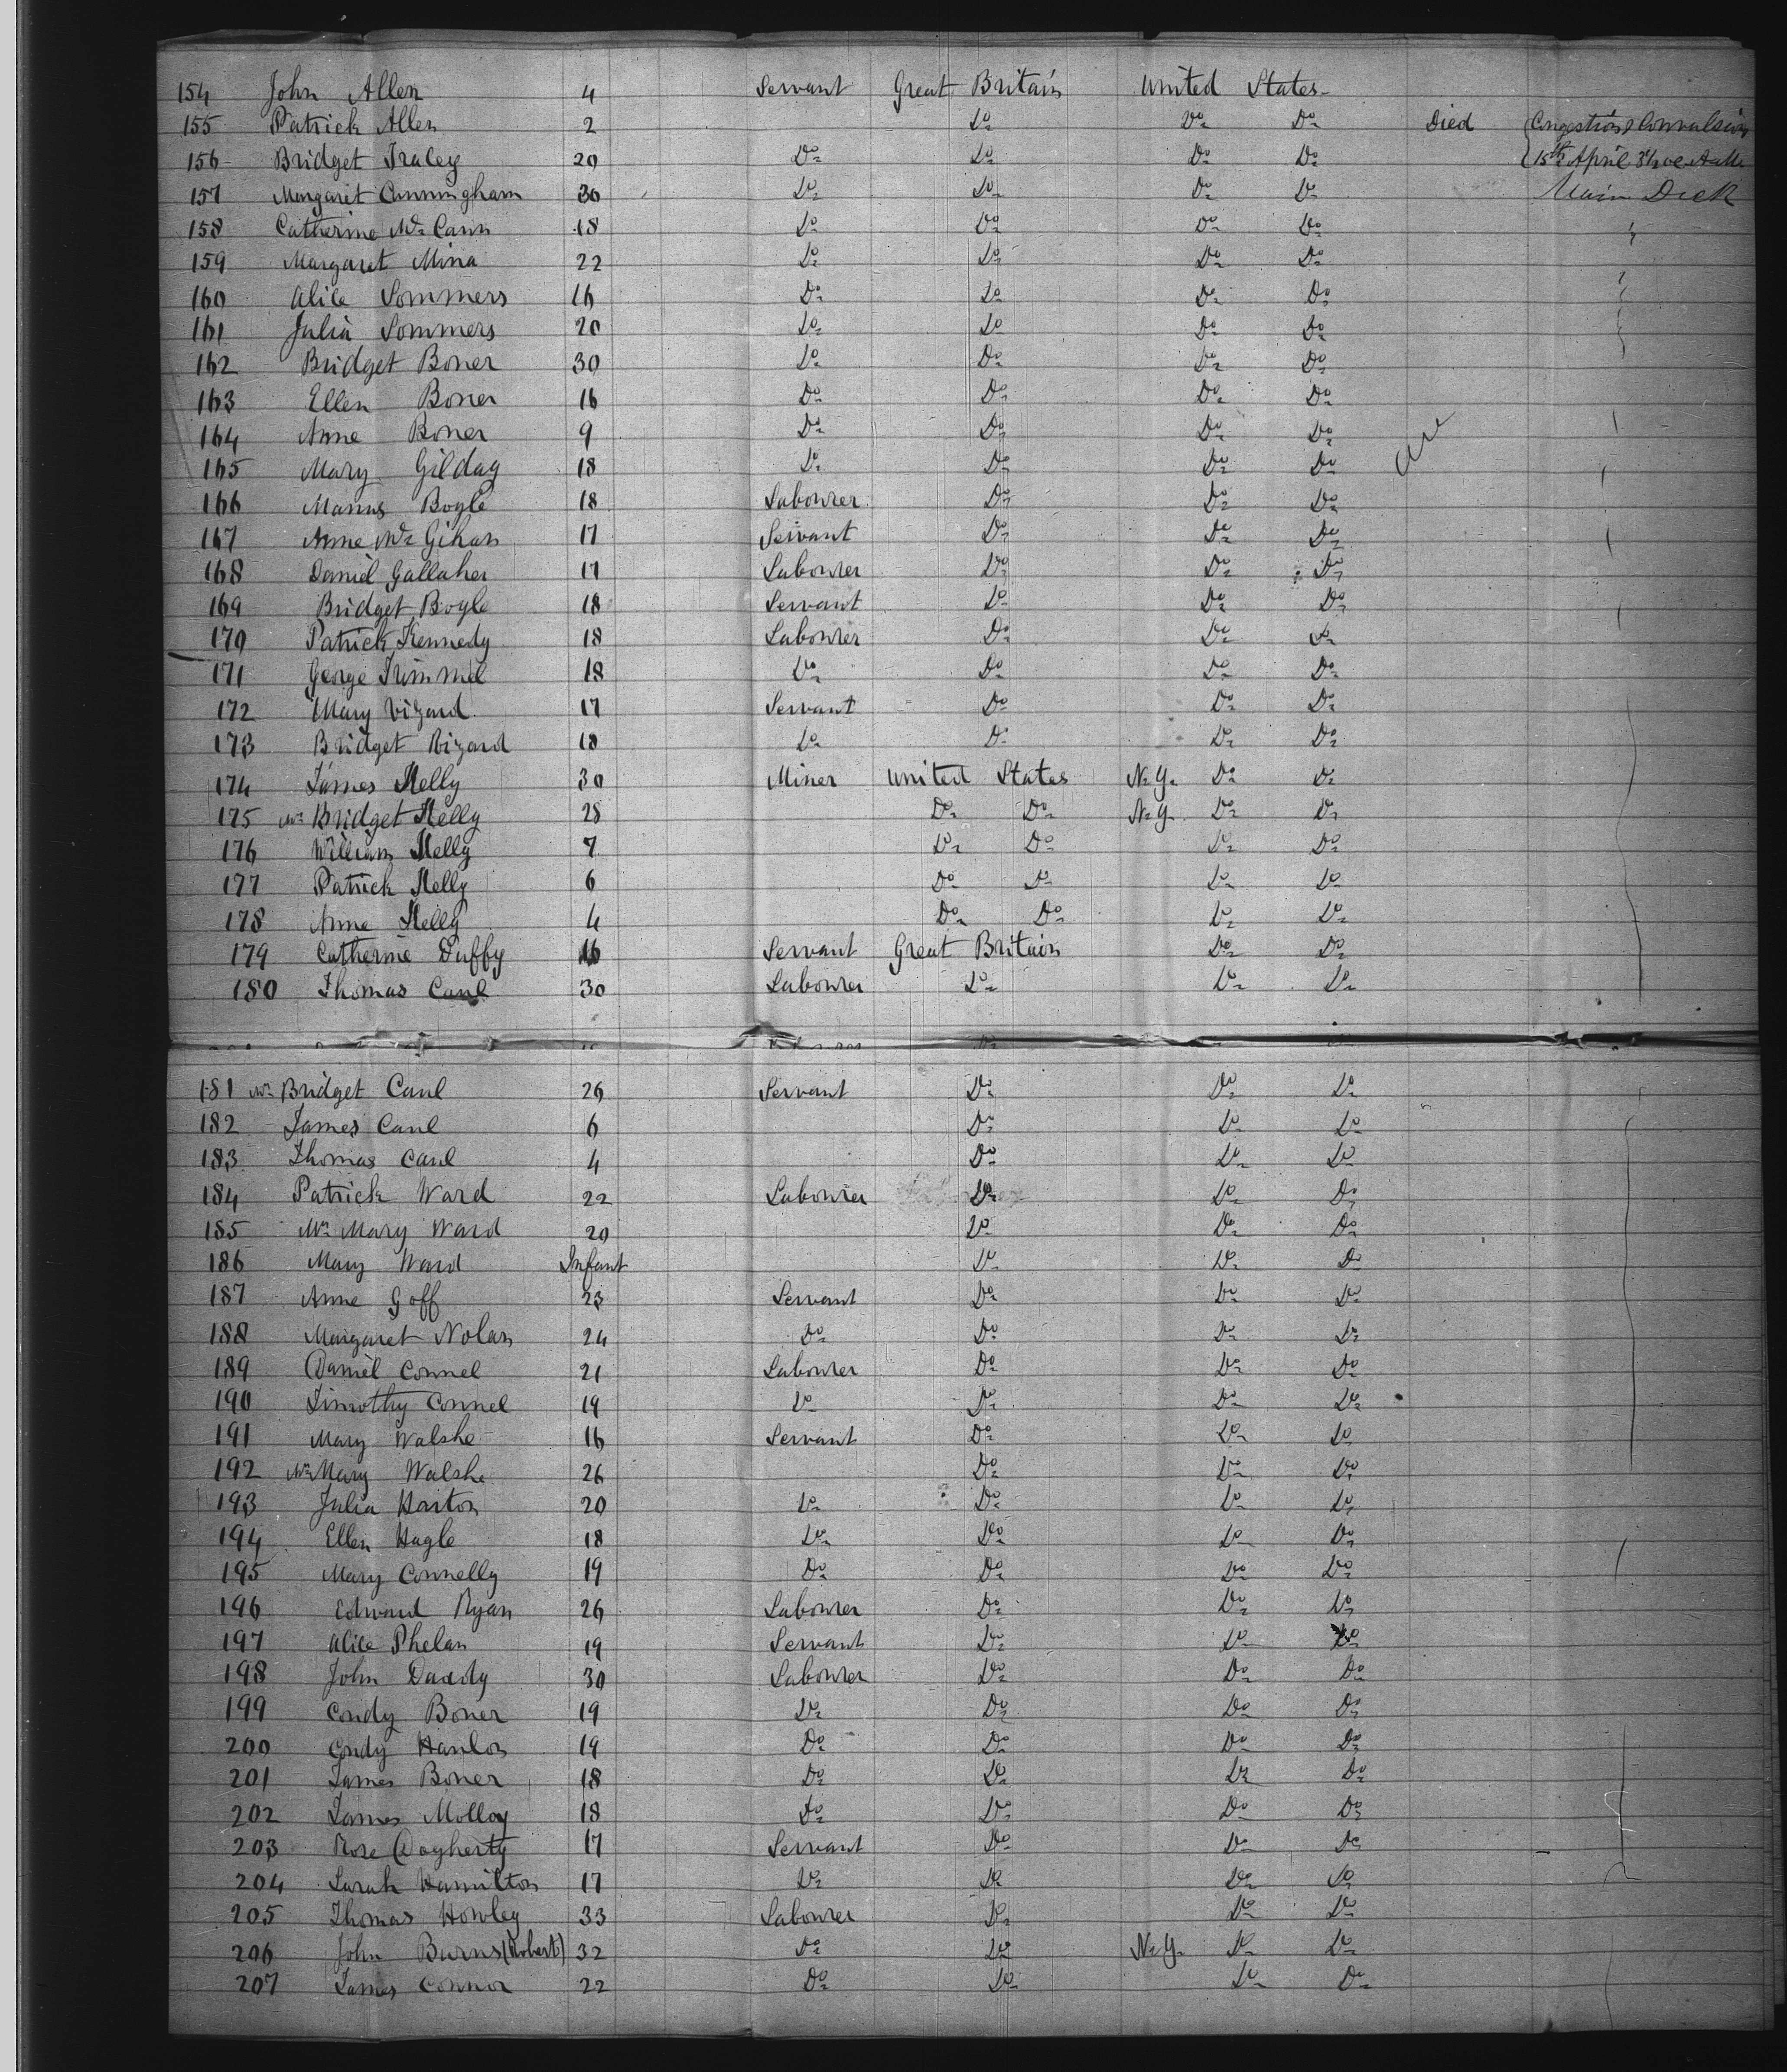 154 John Allen 4 Servant Great Britain United States Died (Congestion & Convulsion
155 Patrick Allen 2 Do Do Do 15th April
156 Bridget 20 Do Do Do Do Main Deck
157 Margaret Cunningham 30 Do Do Do Do
158 Catherine Mc Cann 18 Do Do Do Do
159 Margaret Mina 22 Do Do Do Do
160 Alice Sommers 16 Do Do Do Do
161 Julia Sommers 20 Do Do Do Do
162 Bridget Boner 30 Do Do Do Do
163 Ellen Boner 16 Do Do Do Do
164 Anne Boner 9 Do Do Do Do
165 Mary Gilday 18 Do Do Do Do
166 Manus Boyle 18 Labourer Do Do Do
167 Anne Mc Gihan 17 Servant Do Do Do
168 Daniel Gallaher 17 Labourer Do Do Do
169 Bridget Boyle 18 Servant Do Do Do
170 Patrick Kennedy 18 Labourer Do Do Do
171 George Trimmel 18 Do Do Do Do
172 Mary Vizard 17 Servant Do Do Do
173 Bridget 18 Do Do Do Do
174 James Kelly 30 Miner United States N.Y. Do Do
175 Mrs Bridget Kelly 28 Do Do N.Y. Do Do
176 William Kelly 7 Do Do Do Do
177 Patrick Kelly 6 Do Do Do Do
178 Anne Kelly 4 Do Do Do Do
179 Catherine Duffy 16 Servant Great Britain Do Do
180 Thomas Caul 30 Labourer Do Do Do
181 Mrs Bridget Caul 26 Servant Do Do Do
182 James Caul 6 Do Do Do
183 Thomas Caul 4 Do Do Do
184 Patrick Ward 22 Labourer Do Do Do
185 Mrs Mary Ward 20 Do Do Do
186 Mary Ward Infant Do Do Do
187 Anne Goff 23 Servant Do Do Do
188 Margaret Nolan 24 Do Do Do Do
189 Daniel Connel 21 Labourer Do Do Do
190 Timothy Connel 19 Do Do Do Do
191 Mary Walshe 16 Servant Do Do Do
192 Mrs Mary Walshe 26 Do Do Do
193 Julia Harton 20 Do Do Do Do
194 Ellen Hagle 18 Do Do Do Do
195 Mary Connelly 19 Do Do Do Do
196 Edward Ryan 26 Labourer Do Do Do
197 Alice Phelan 19 Servant Do Do Do
198 John Daddy 30 Labourer Do Do Do
199 Condy Boner 19 Do Do Do Do
200 Condy Hanlon 19 Do Do Do Do
201 James Boner 18 Do Do Do Do
202 James Molloy 18 Do Do Do Do
203 Rose Dogherty 17 Servant Do Do Do
204 Sarah Hamilton 17 Do Do Do Do
205 Thomas Howley 33 Labourer Do Do Do
206 John Burns (Robert) 32 Do Do N.Y. Do Do
207 James Connor 22 Do Do Do Do